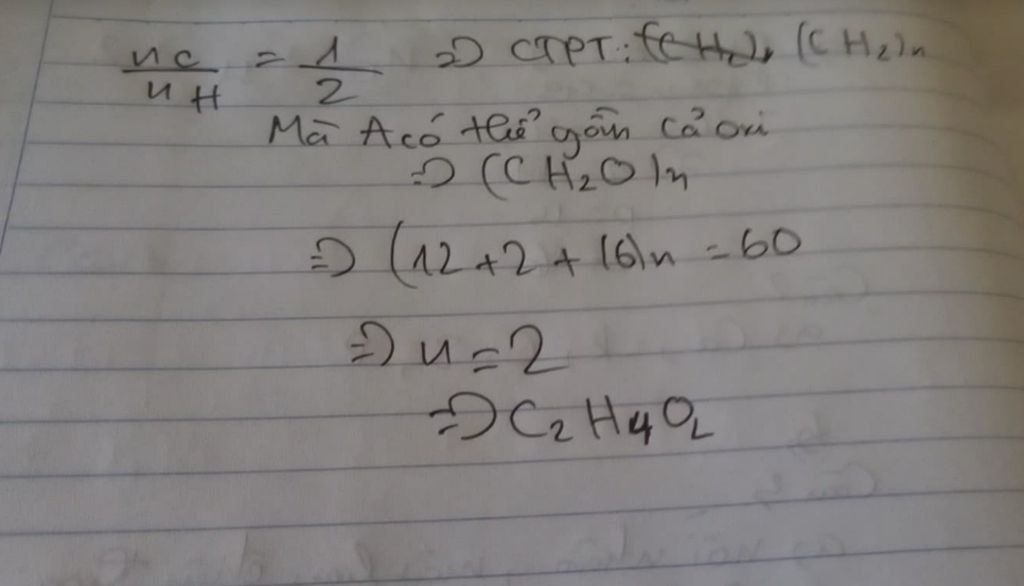 nC/nH = 1/2 => CTPT: (CH2)n
Mà A có thể gồm cả oxi
=> (CH2O)n
=> (12 + 2 + 16)n = 60
=> n = 2
=> C2H4O2